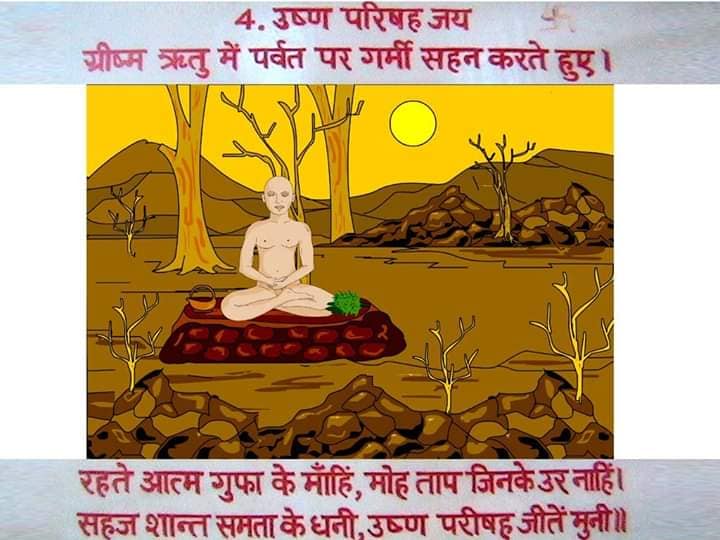 4. उष्ण परिषह जय
ग्रीष्म ऋतु में पर्वत पर गर्मी सहन करते हुए।
रहते आत्म गुफा के माँहिं, मोह ताप जिनके उर नाहिं।
सहज शान्त समता के धनी, उष्ण परीषह जीतें मुनी॥